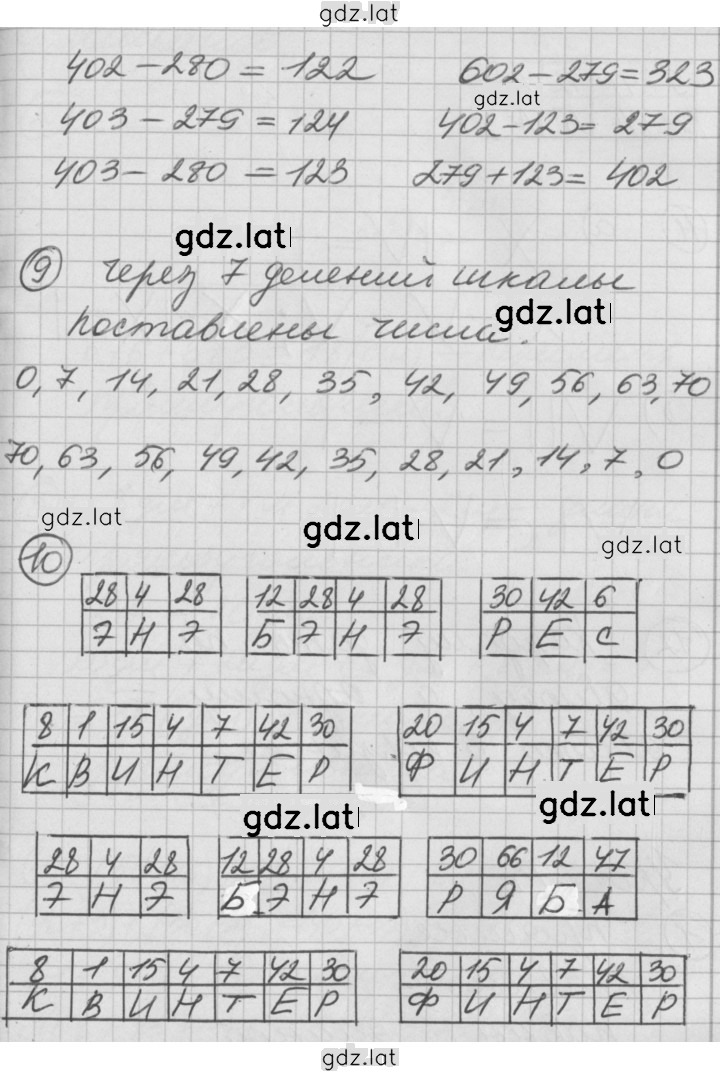 gdz.lat
402 - 280 = 122 602 - 279 = 323
gdz.lat
403 - 279 = 124 402 - 123 = 279
403 - 280 = 123 279 + 123 = 402
gdz.lat
9 Через 7 делений шкалы
gdz.lat
поставлены числа.
0, 7, 14, 21, 28, 35, 42, 49, 56, 63, 70
70, 63, 56, 49, 42, 35, 28, 21, 14, 7, 0
gdz.lat gdz.lat gdz.lat
10
28 4 28 12 28 4 28 30 42 6
Э Н Э Б Э Н Э Р Е С
8 1 15 4 7 42 30 20 15 4 7 42 30
К В И Н Т Е Р Ф И Н Т Е Р
gdz.lat gdz.lat
28 4 28 12 28 4 28 30 66 12 47
Э Н Э Б Э Н Э Р Я Б А
8 1 15 4 7 42 30 20 15 4 7 42 30
К В И Н Т Е Р Ф И Н Т Е Р
gdz.lat